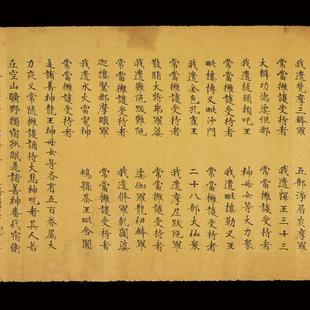 我遣梵摩三鉢羅　五部淨居炎摩羅
常當擁護受持者　我遣釋王三十三
大辯功德婆怛那　常當擁護受持者
我遣提頭賴吒王　神母女等大力衆
常當擁護受持者　我遣毗樓勒叉王
毗樓博叉毗沙門　常當擁護受持者
我遣金色孔雀王　二十八部大仙衆
常當擁護受持者　我遣摩尼跋陁羅
散脂大將弗羅婆　常當擁護受持者
我遣難陁跋難陁　娑伽羅龍伊鉢羅
常當擁護受持者　我遣脩羅乾闥婆
迦樓緊那摩睺羅　常當擁護受持者
我遣水火雷電神　鳩槃荼王毗舍闍
常當擁護受持者
是諸善神龍王神母女等各有五百眷屬大
力夜叉常隨擁護誦持大悲神呪者其人若
在空山曠野獨宿孤眠是諸善神番代宿衛